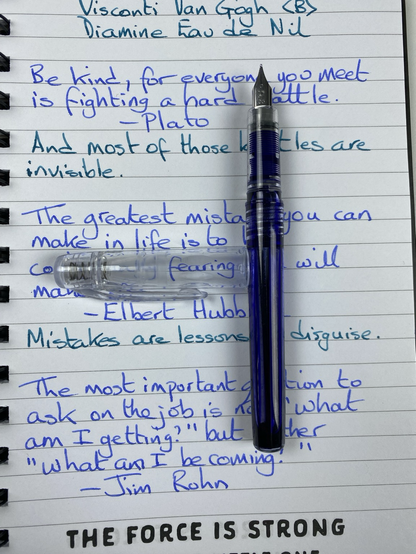 Visconti Van Gogh <B>
Diamine Eau de Nil
Be kind, for everyone you meet
is fighting a hard attle.
—Plato
And most of those b tles are
invisible.
The greatest mista you can
make in life is to
co fearing will
ma
—Elbert Hubb
Mistakes are lessons disguise.
The most important tion to
ask on the job is "what
am I getting?" but ther
"what am I becoming? "
—Jim Rohn
THE FORCE IS STRONG